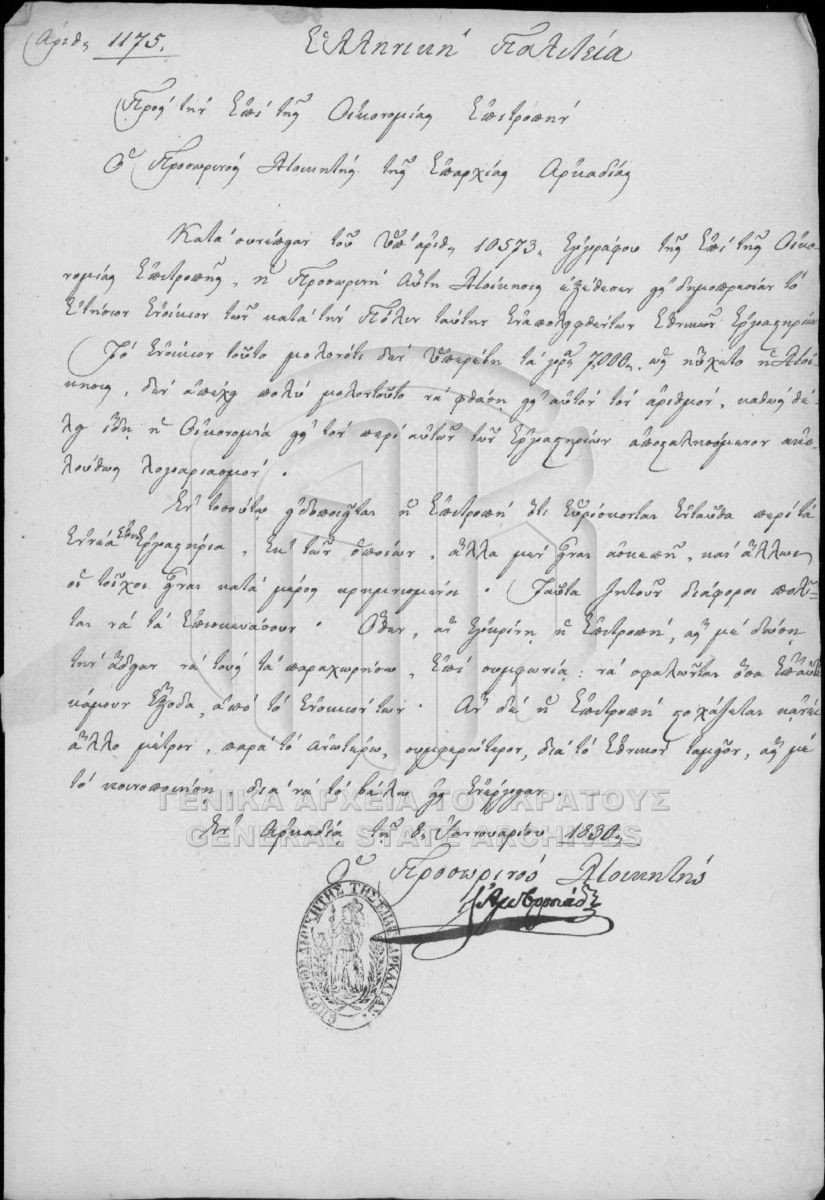 Ἀριθ. 1175.
Ἑλληνικὴ Πολιτεία
Πρὸς τὴν ἐπὶ τῆς Οἰκονομίας Ἐπιτροπὴν
Ὁ Προσωρινὸς Διοικητὴς τῆς Ἐπαρχίας Ἀρκαδίας
Κατὰ συνέπειαν τοῦ ὑπ' ἀριθ. 10573. ἐγγράφου τῆς ἐπὶ τῆς Οἰκο-
νομίας Ἐπιτροπῆς, ἡ Προσωρινὴ αὕτη Διοίκησις ἐξέθεσεν εἰς δημοπρασίαν τὸ
ἐτήσιον ἐνοίκιον τῶν κατὰ τὴν Πόλιν ταύτην ἐναπολειφθέντων Ἐθνικῶν Ἐργαστηρίων
Τὸ ἐνοίκιον τοῦτο μολονότι δὲν ὑπερέβη τὰ γρόσ. 7,000, ὡς ηὔχετο ἡ Διοί-
κησις, δὲν ἀπέχει πολὺ μολοντοῦτο νὰ φθάσῃ εἰς αὐτὸν τὸν ἀριθμὸν, καθὼς θέ-
λει ἰδῆ ἡ Οἰκονομία εἰς τὸν περὶ αὐτῶν τῶν Ἐργαστηρίων ἀποσταλησόμενον ἀκο-
λούθως λογαριασμόν.
Ἐν τοσούτῳ εἰδοποιεῖται ἡ Ἐπιτροπὴ ὅτι εὑρίσκονται ἐνταῦθα περὶ τὰ
ἐννέα ἔτι Ἐργαστήρια, ἐκ τῶν ὁποίων, ἄλλα μὲν εἶναι ἀσκεπῆ, καὶ ἄλλων
οἱ τοῖχοι εἶναι κατὰ μέρος κρημνισμένοι. Ταῦτα ζητοῦν διάφοροι πολῖ-
ται νὰ τὰ ἐπισκευάσουν. Ὅθεν, ἂν ἐγκρίνῃ ἡ Ἐπιτροπὴ, ἂς μὲ δώσῃ
τὴν ἄδειαν νὰ τοὺς τὰ παραχωρήσω, ἐπὶ συμφωνίᾳ: νὰ ὀφελῶνται ὅσα ἐπ' αὐτὰ
κάμουν ἔξοδα, ἀπὸ τὸ ἐνοίκιόν των. Ἂν δὲ ἡ Ἐπιτροπὴ στοχάζεται κᾀνὲν
ἄλλο μέτρον, παρὰ τὸ ἀνωτέρω, συμφερώτερον, διὰ τὸ ἐθνικὸν ταμεῖον, ἂς μὲ
τὸ κοινοποιήσῃ, διὰ νὰ τὸ βάλω εἰς ἐνέργειαν.
Ἐν Ἀρκαδίᾳ τῇ 8 Ἰαννουαρίου 1830.
Ὁ Προσωρινὸς Διοικητὴς
ΔΙΟΙΚΗΤΗΣ ΤΗΣ ΕΠΑΡ. ΑΡΚΑΔΙΑΣ
ΓΕΝΙΚΑ ΑΡΧΕΙΑ ΤΟΥ ΚΡΑΤΟΥΣ
GENERAL STATE ARCHIVES